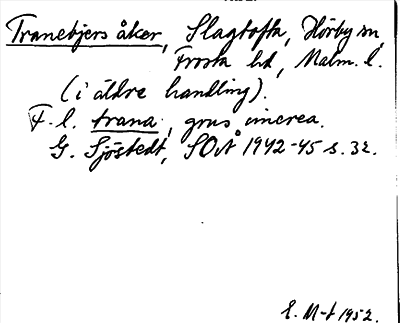 Tranebjers åker, Slagtofta, Hörby sn,
Frosta hd, Malm. l.
(i äldre handling).
F. l. trana, grus cinerea.
G. Sjöstedt, SOÅ 1942-45 s. 32.
E. M-t 1952.